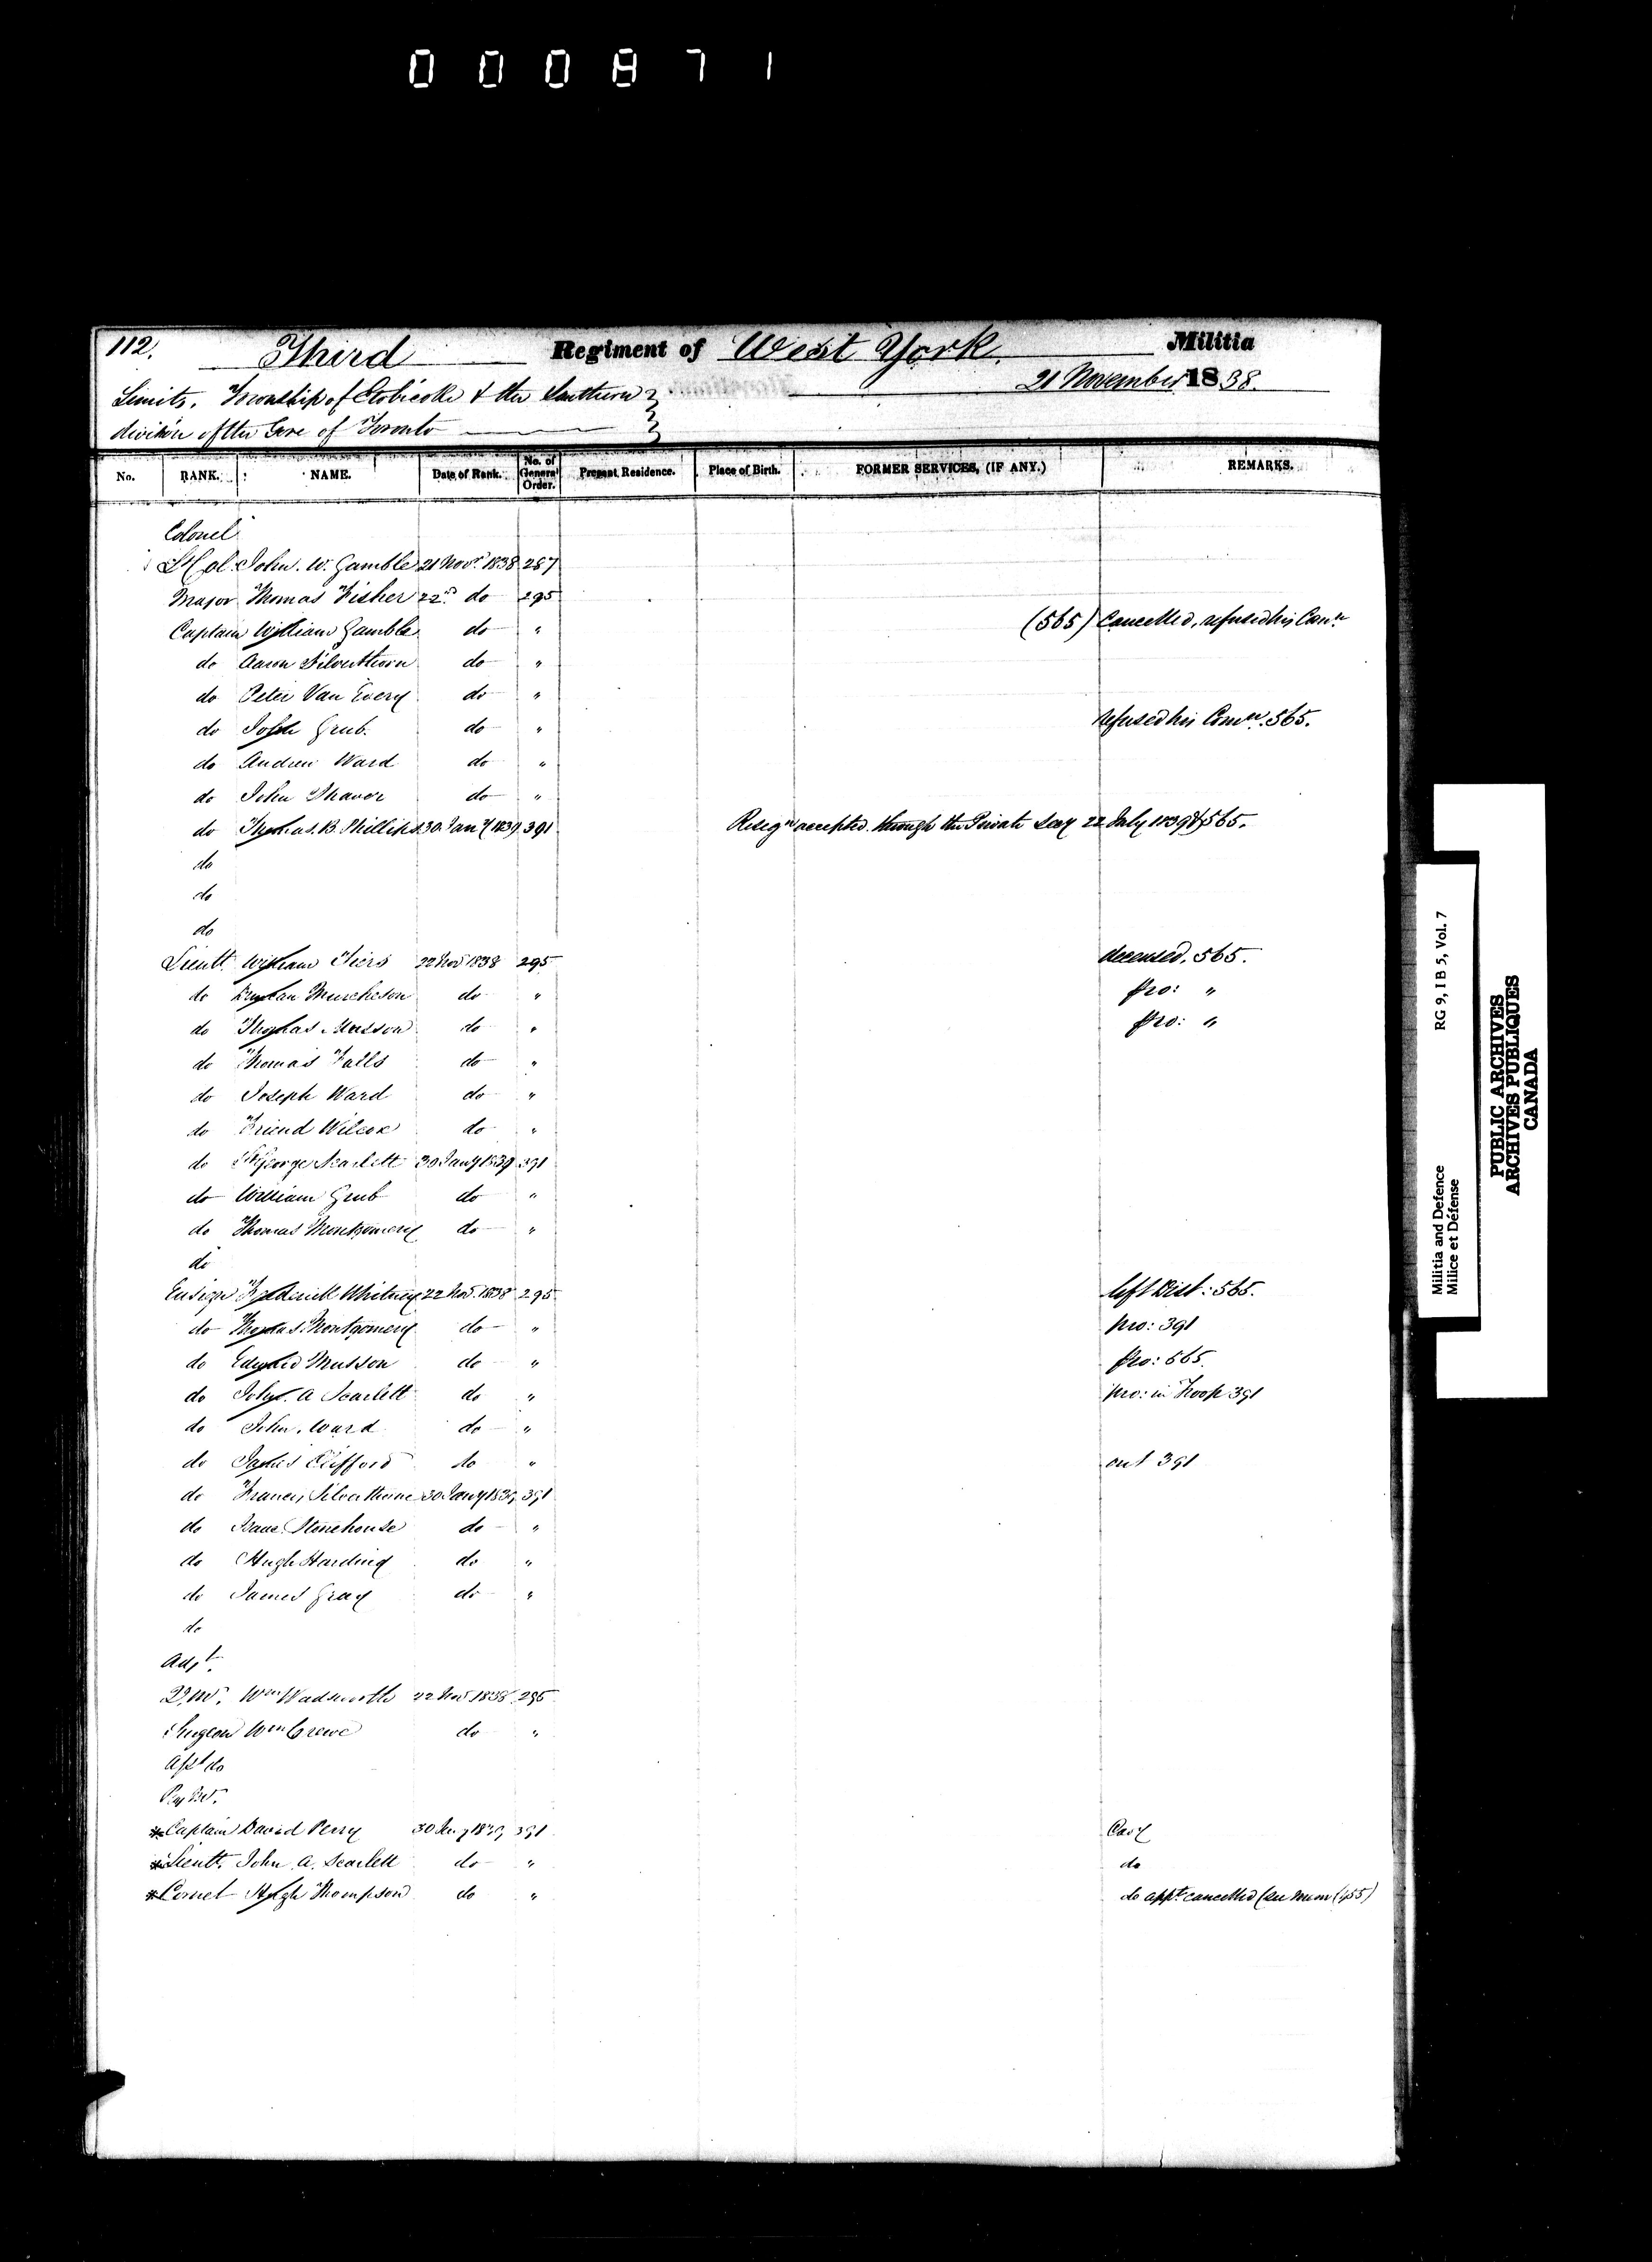 000871
112. Third Regiment of West York Militia
21 November 1838.
Limits. Township of Etobicoke & the Southern
division of the Gore of Toronto
No. RANK. NAME. Date of Rank. No. of General Order. Present Residence. Place of Birth. FORMER SERVICES, (IF ANY.) REMARKS.
Colonel
Lt Col. John. W. Gamble 21 Novr. 1838 287
Major Thomas Fisher 22d do 295
Captain William Gamble do " (565) Cancelled, refused his Comn
do Aaron Silverthorn do "
do Peter Van Every do "
do John Grub. do " refused his Comn. 565.
do Andrew Ward do "
do John Shaver do "
do Thomas. B. Phillips 30 Jany 1839 391 Resign accepted through the Private Secy 22 July 1839 565.
do
do
do
Lieutt. William Tiers 22 Nov 1838 295 deceased. 565.
do Murcheson do " pro: "
do Thomas Musson do " pro: "
do Thomas Falls do "
do Joseph Ward do "
do Friend Wilcox do "
do St George Scarlett 30 Jany 1839 391
do William Grub do "
do Thomas Montgomery do "
do
Ensign Frederick Whitney 22 Nov. 1838 295 left Dist: 565.
do Thomas Montgomery do " pro: 391
do Edward Musson do " pro: 565.
do John. A Scarlett do " pro: in Troop 391
do John. Ward do "
do James Clifford do " out 391
do Francis Silverthorne 30 Jany 1839 391
do Isaac Stonehouse do "
do Hugh Harding do "
do James Gray do "
do
Adjt.
Q.Mr. Wm Wadsworth 22 Nov 1838 295
Surgeon Wm Crewe do "
Asst do
Pay Mr.
*Captain David Perry 30 Jany 1839 391 Cavy
*Lieutt. John A. Scarlett do " do
*Cornet Hugh Thompson do " do appt. cancelled (see Mem (455)
RG 9, I B 5, Vol. 7
Militia and Defence
Milice et Défense
PUBLIC ARCHIVES
ARCHIVES PUBLIQUES
CANADA